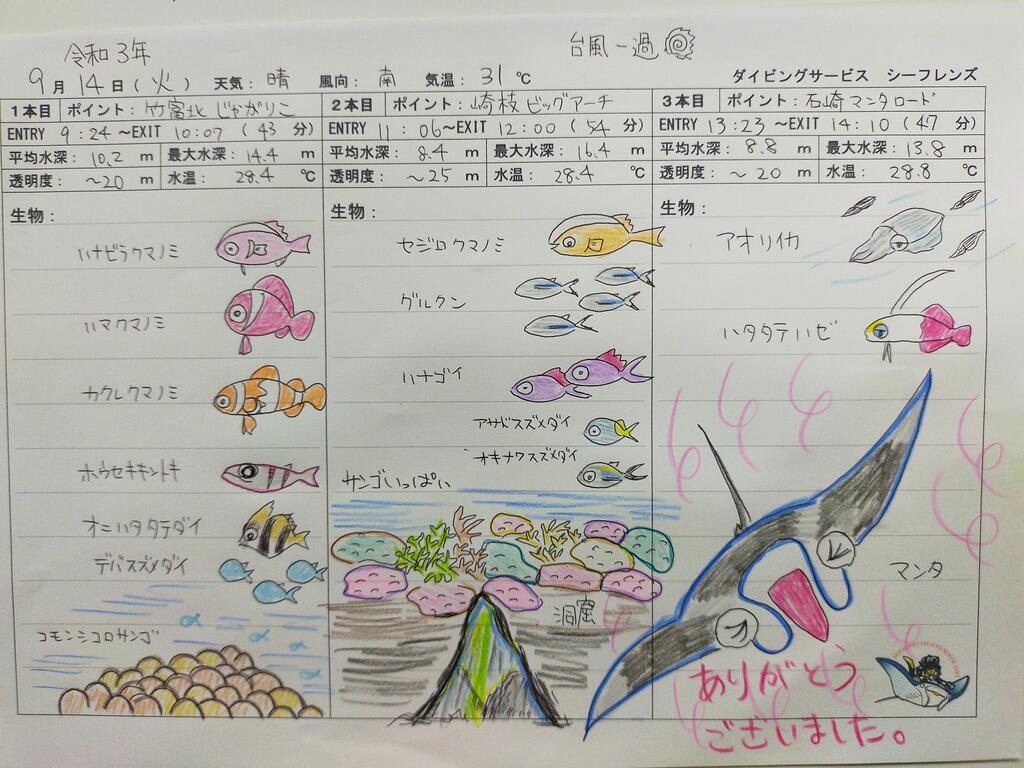 令和3年
台風一過
9月14日(火) 天気: 晴 風向: 南 気温: 31℃
ダイビングサービス シーフレンズ
1本目 ポイント: 竹富北 じゃがりこ
ENTRY 9:24～EXIT 10:07 (43分)
平均水深: 10.2 m 最大水深: 14.4 m
透明度: ～20 m 水温: 28.4 ℃
生物:
ハナビラクマノミ
ハマクマノミ
カクレクマノミ
ホウセキキントキ
オニハタタテダイ
デバスズメダイ
コモンシコロサンゴ
2本目 ポイント: 崎枝 ビッグアーチ
ENTRY 11:06～EXIT 12:00 (54分)
平均水深: 8.4 m 最大水深: 16.4 m
透明度: ～25 m 水温: 28.4 ℃
生物:
セジロクマノミ
グルクン
ハナゴイ
アサドスズメダイ
オキナワスズメダイ
サンゴいっぱい
洞窟
3本目 ポイント: 石崎マンタロード
ENTRY 13:23～EXIT 14:10 (47分)
平均水深: 8.8 m 最大水深: 13.8 m
透明度: ～20 m 水温: 28.8 ℃
生物:
アオリイカ
ハタタテハゼ
マンタ
ありがとう
ございました。